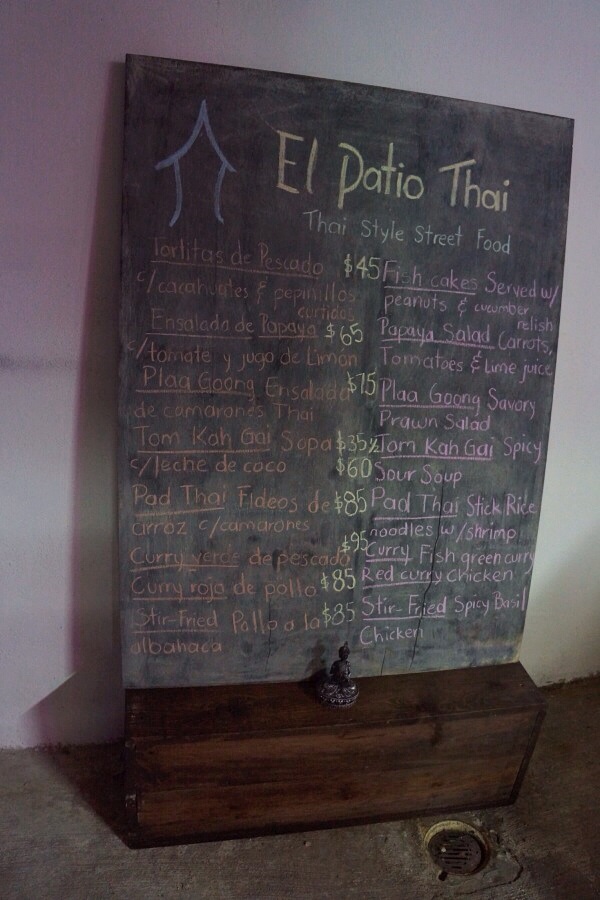 El Patio Thai
Thai Style Street Food
Tortitas de Pescado $45
c/cacahuates & pepinillos
curtidos
Ensalada de Papaya $65
c/tomate y jugo de Limon
Plaa Goong Ensalada $75
de camarones Thai
Tom Kah Gai Sopa $35 ½
c/leche de coco $60
Pad Thai Fideos de $85
arroz c/camarones
Curry verde de pescado $95
Curry rojo de pollo $85
Stir-Fried Pollo a la $85
albahaca
Fish cakes Served w/
peanuts & cucumber
relish
Papaya Salad Carrots,
Tomatoes & Lime juice
Plaa Goong Savory
Prawn Salad
Tom Kah Gai Spicy
Sour Soup
Pad Thai Stick Rice
noodles w/shrimp
Curry Fish green curry
Red curry Chicken
Stir-Fried Spicy Basil
Chicken